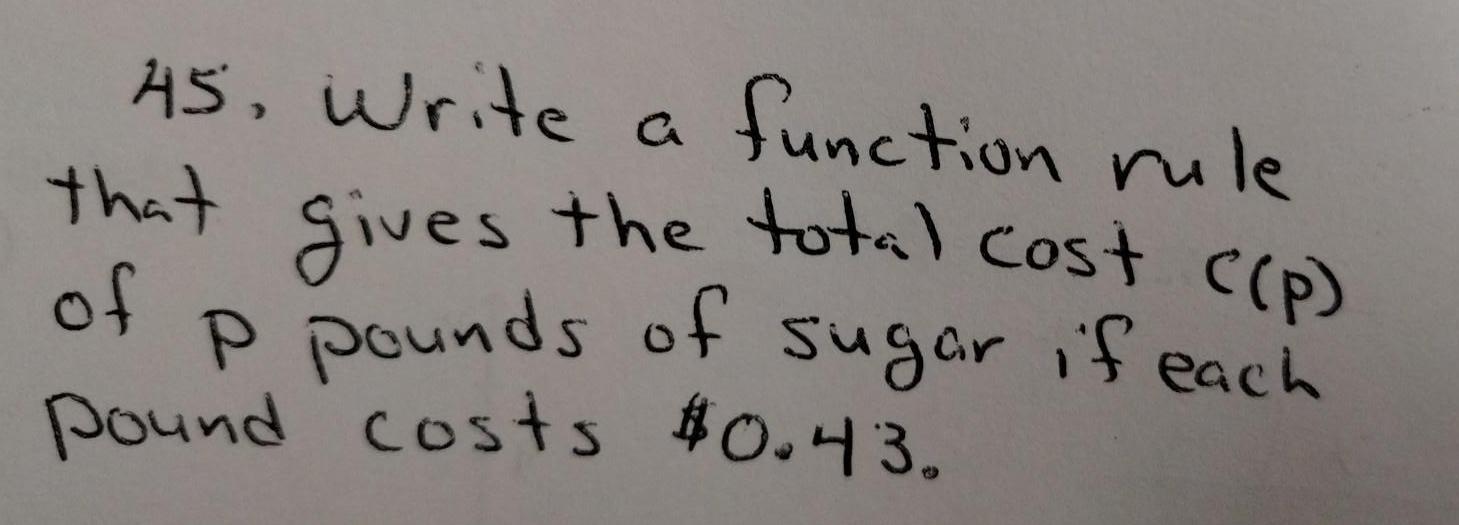 45. Write a function rule
that gives the total cost c(p)
of p pounds of sugar if each
pound costs $0.43.